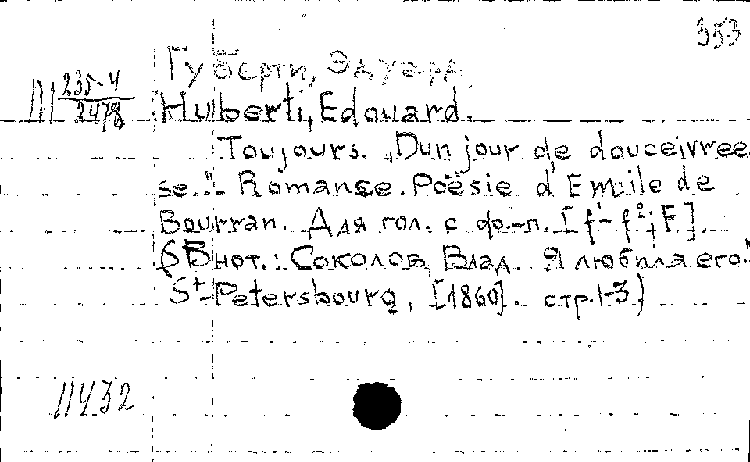 353
Губерти, Эдуард.
III 235-4/2478
Huberti, Edouard.
Toujours. „D'un jour de douce ivres
se." - Romanse. Poësie d'Emile de
Bourran. Для гол. с ф.-п. [f¹-f²; F].
(В нот.: Соколов, Влад. Я любила его.
St-Petersbourg, [1860]. стр. 1-3)
11432